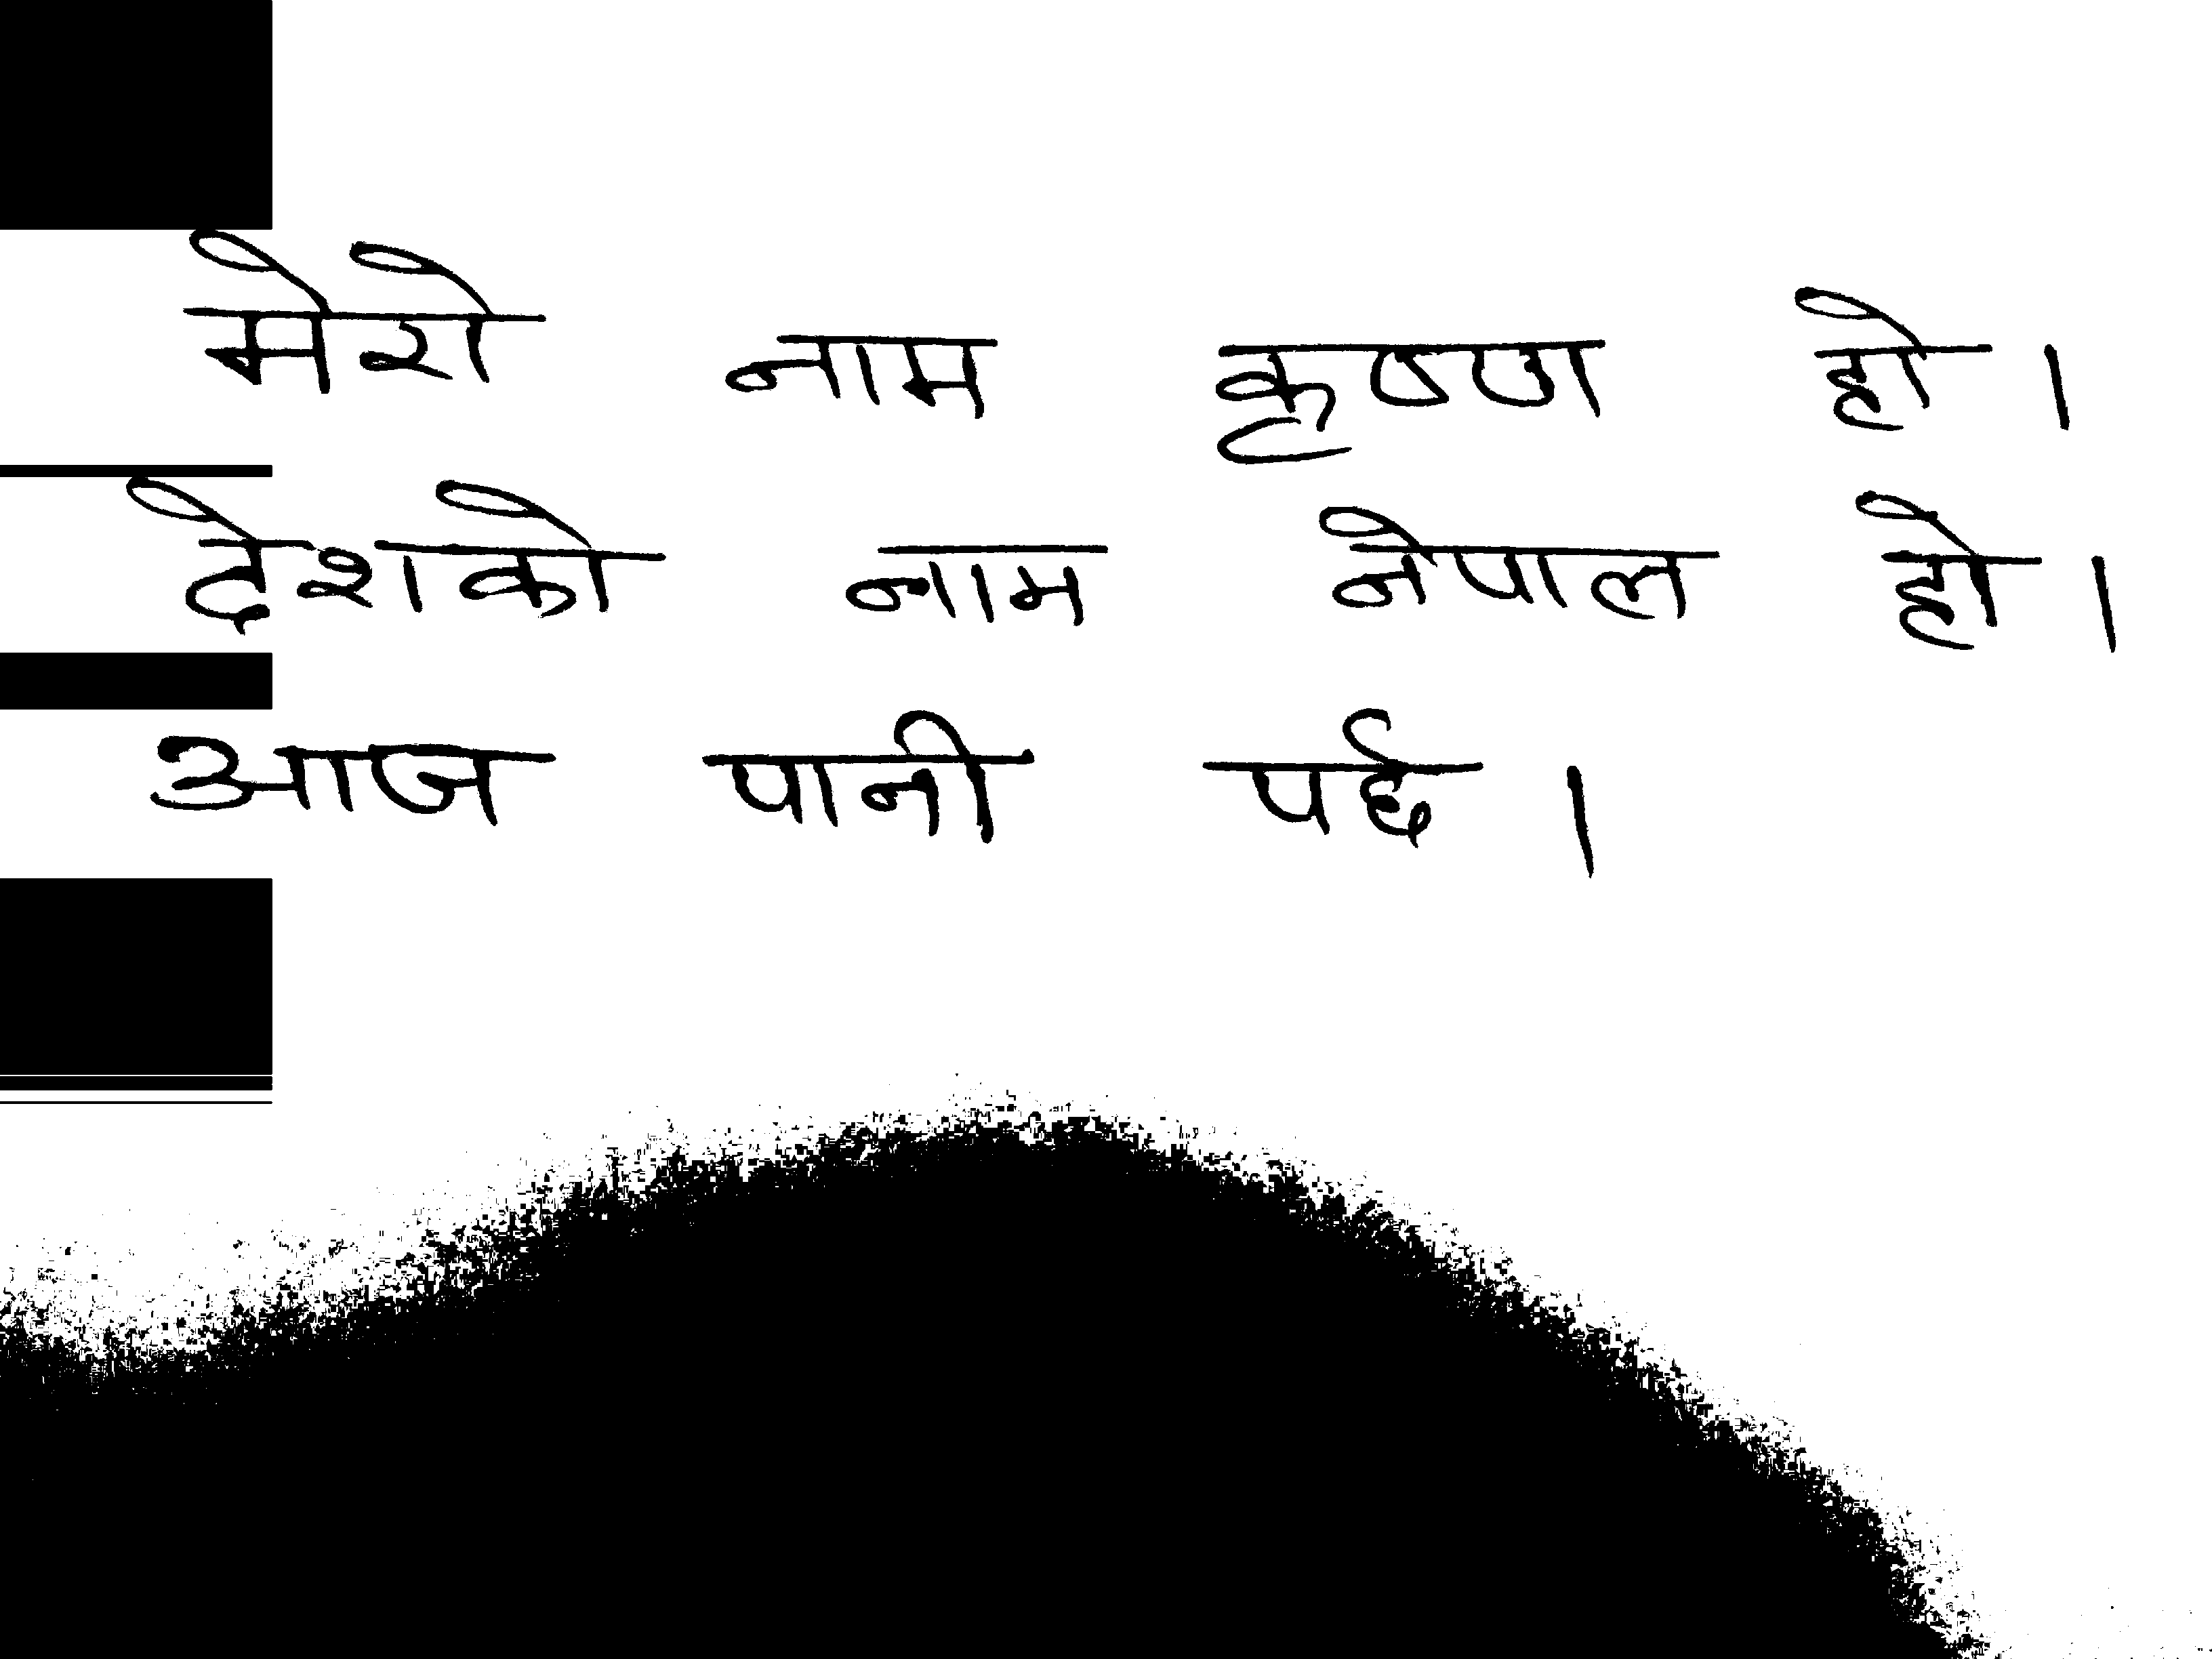 मेरो नाम कृष्ण हो ।
देशको नाम नेपाल हो ।
आज पानी पर्छ ।